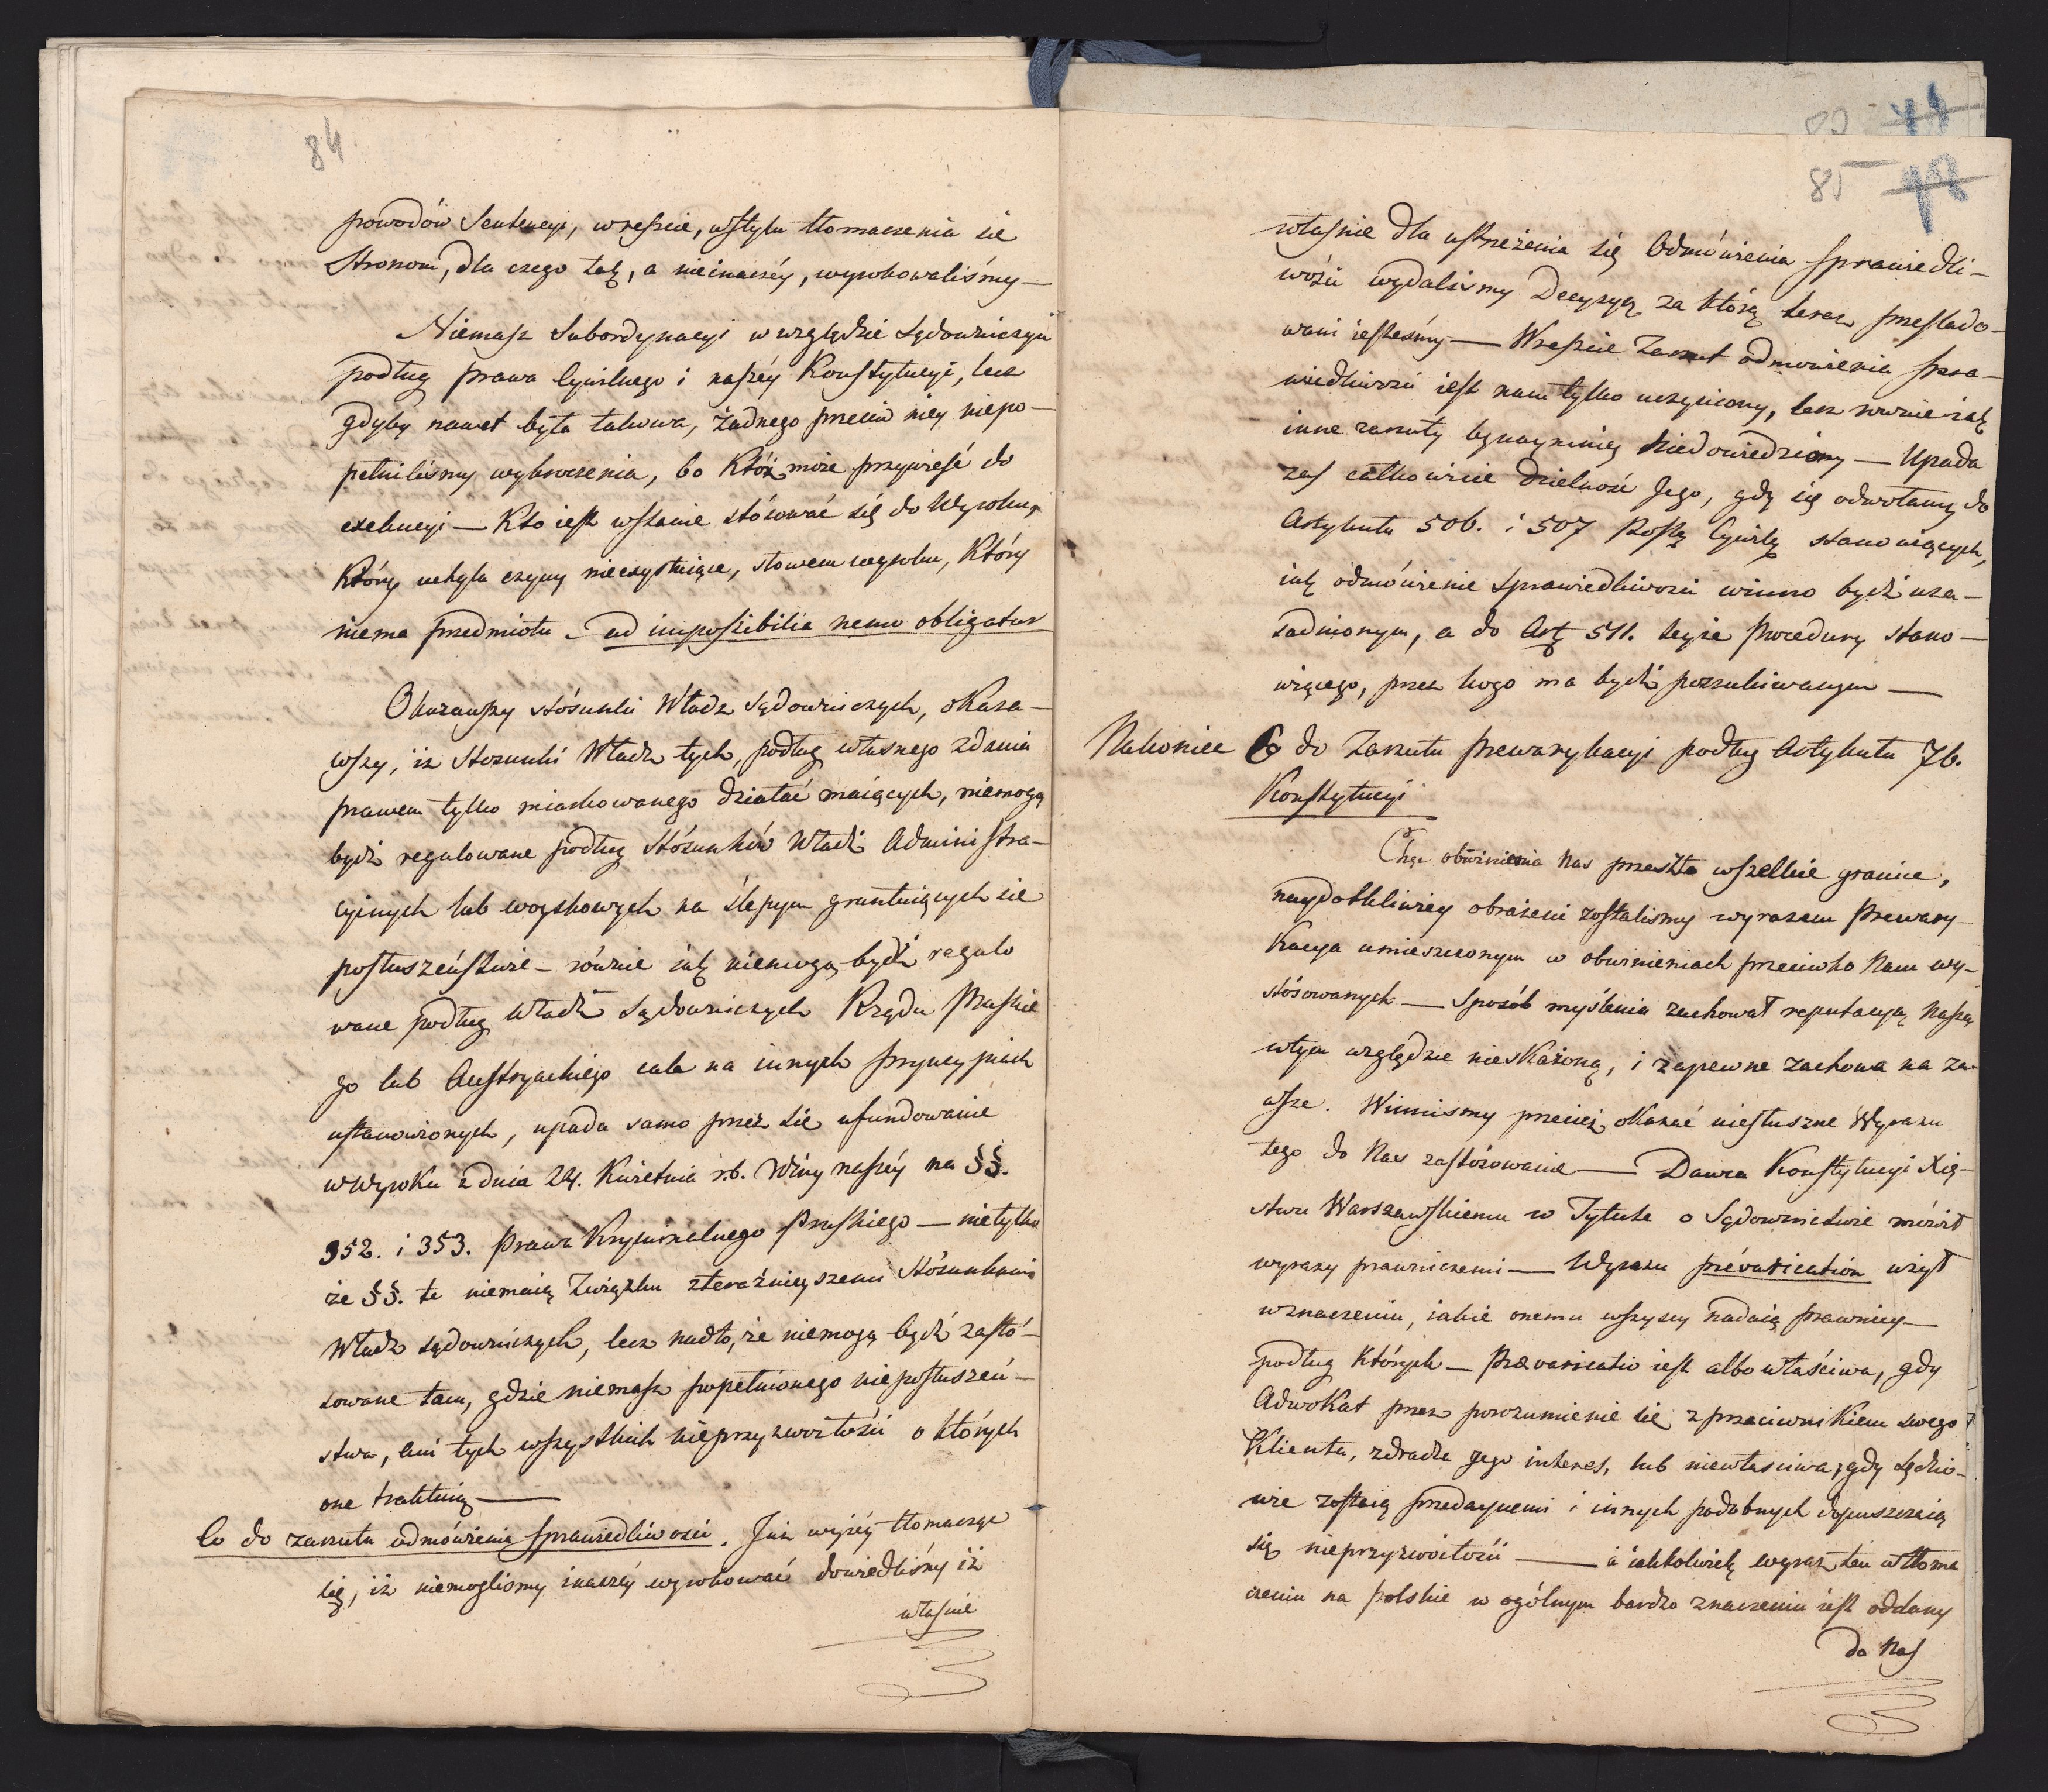 84
powodów Sentencyi, wreszcie, wstylu tłomaczenia sie
Stronom, dla czego tak, a nieinaczéy, wyrokowaliśmy —
Niemasz Subordynacyi wwzględzie Sądowniczym
podług prawa Cywilnego i naszéy Konstytucyi, lecz
gdyby nawet była takowa, żadnego przeciw niey niepo-
pełniliśmy wykroczenia, bo Któż może przywieść do
exekucyi — Kto iest wstanie stósować się do Wyroku,
Który uchyla czyny nieczystniące, słowem wyroku, Który
niema przedmiotu — ad impossibilia nemo obligatur
Okazawszy stósunki Władz Sądowniczych, okaza-
wszy, iż stosunki Władz tych, podług własnego zdania
prawem tylko miarkowanego działać maiących, niemogą
bydź regulowane podług stósunków Władz Administra-
cyinych lub woyskowych na ślepym gruntuiących sie
posłuszeństwie — równie iak niemogą bydź regulo
wane podług Władz Sądowniczych Rządu Pruskie
go lub Austryackiego cale na innych pryncypiach
ustanowionych, upada samo przez sie ufundowanie
wWyroku z dnia 24. Kwietnia r.b. Winy naszéy na §§.
352. i 353. Prawa Kryminalnego Pruskiego — nietylko
że §§. te niemaią Związku zteraźnieyszemi Stósunkami
Władz sądowniczych, lecz nadto, że niemogą bydź zastó-
sowane tam, gdzie niemasz popełnionego nieposłuszeń-
stwa, ani tych wszystkich nieprzyzwoitości o których
one traktuią —
Co do zarzutu odmówienia sprawiedliwości. Już wyżéy tłomacząc
się, iż niemogliśmy inaczéy wyrokować dowiedliśmy iż
własnie
85
własnie dla ustrzeżenia się Odmówienia sprawiedli-
wości wydalismy Decyzyą za którą teraz prześlado-
wani iesteśmy — Wreszcie Zarzut odmowienia spra-
wiedliwości iest nam tylko uczyniony, lecz rownie iak
inne zarzuty bynaymniey Niedowiedziony — Upada
zaś całkowicie dzielność Jego, gdy się odwołamy do
Artykułu 506. i 507 Possę. Cywilę stanowiących,
iak odmówienie sprawiedliwości winno bydź uza-
sadnionym, a do Art 511. teyże Procedury stano-
wiącego, przez kogo ma bydź poszukiwanym —
Nakoniec Co do Zarzutu prewarykacyi podług Artykułu 76.
Konstytucyi
Chęć obwinienia Nas przeszła wszelkie granice,
naydotkliwiey obrażeni zostalismy wyrazem Prewary-
kacya umieszczonym w obwinieniach przeciwko Nam wy-
stósowanych — Sposób myślenia zachował reputacyą Naszą
wtym względzie nieskażoną, i zapewne zachowa na za-
wsze. Winnismy przeciez okazać niesłuszne Wyrazu
tego do Nas zastósowanie — Dawca Konstytucyi Xię-
stwu Warszawskiemu w Tytule o Sądownictwie mówił
wyrazy prawniczemi — Wyrazu prévarication użył
wznaczeniu, iakie onemu wszyscy nadaią Prawnicy —
podług których — Praevaricatio iest albo właściwa, gdy
Adwokat przez porozumienie sie z przeciwnikiem swego
Klienta, zdradza jego interes, lub niewłasciwa, gdy Sędzio-
wie zostaią przedaynemi i innych podobnych dopuszczaią
się nieprzyzwoitości — a iakkolwiek wyraz ten w tłoma
czeniu na polskie w ogólnym bardzo znaczeniu iest oddany
do Nas